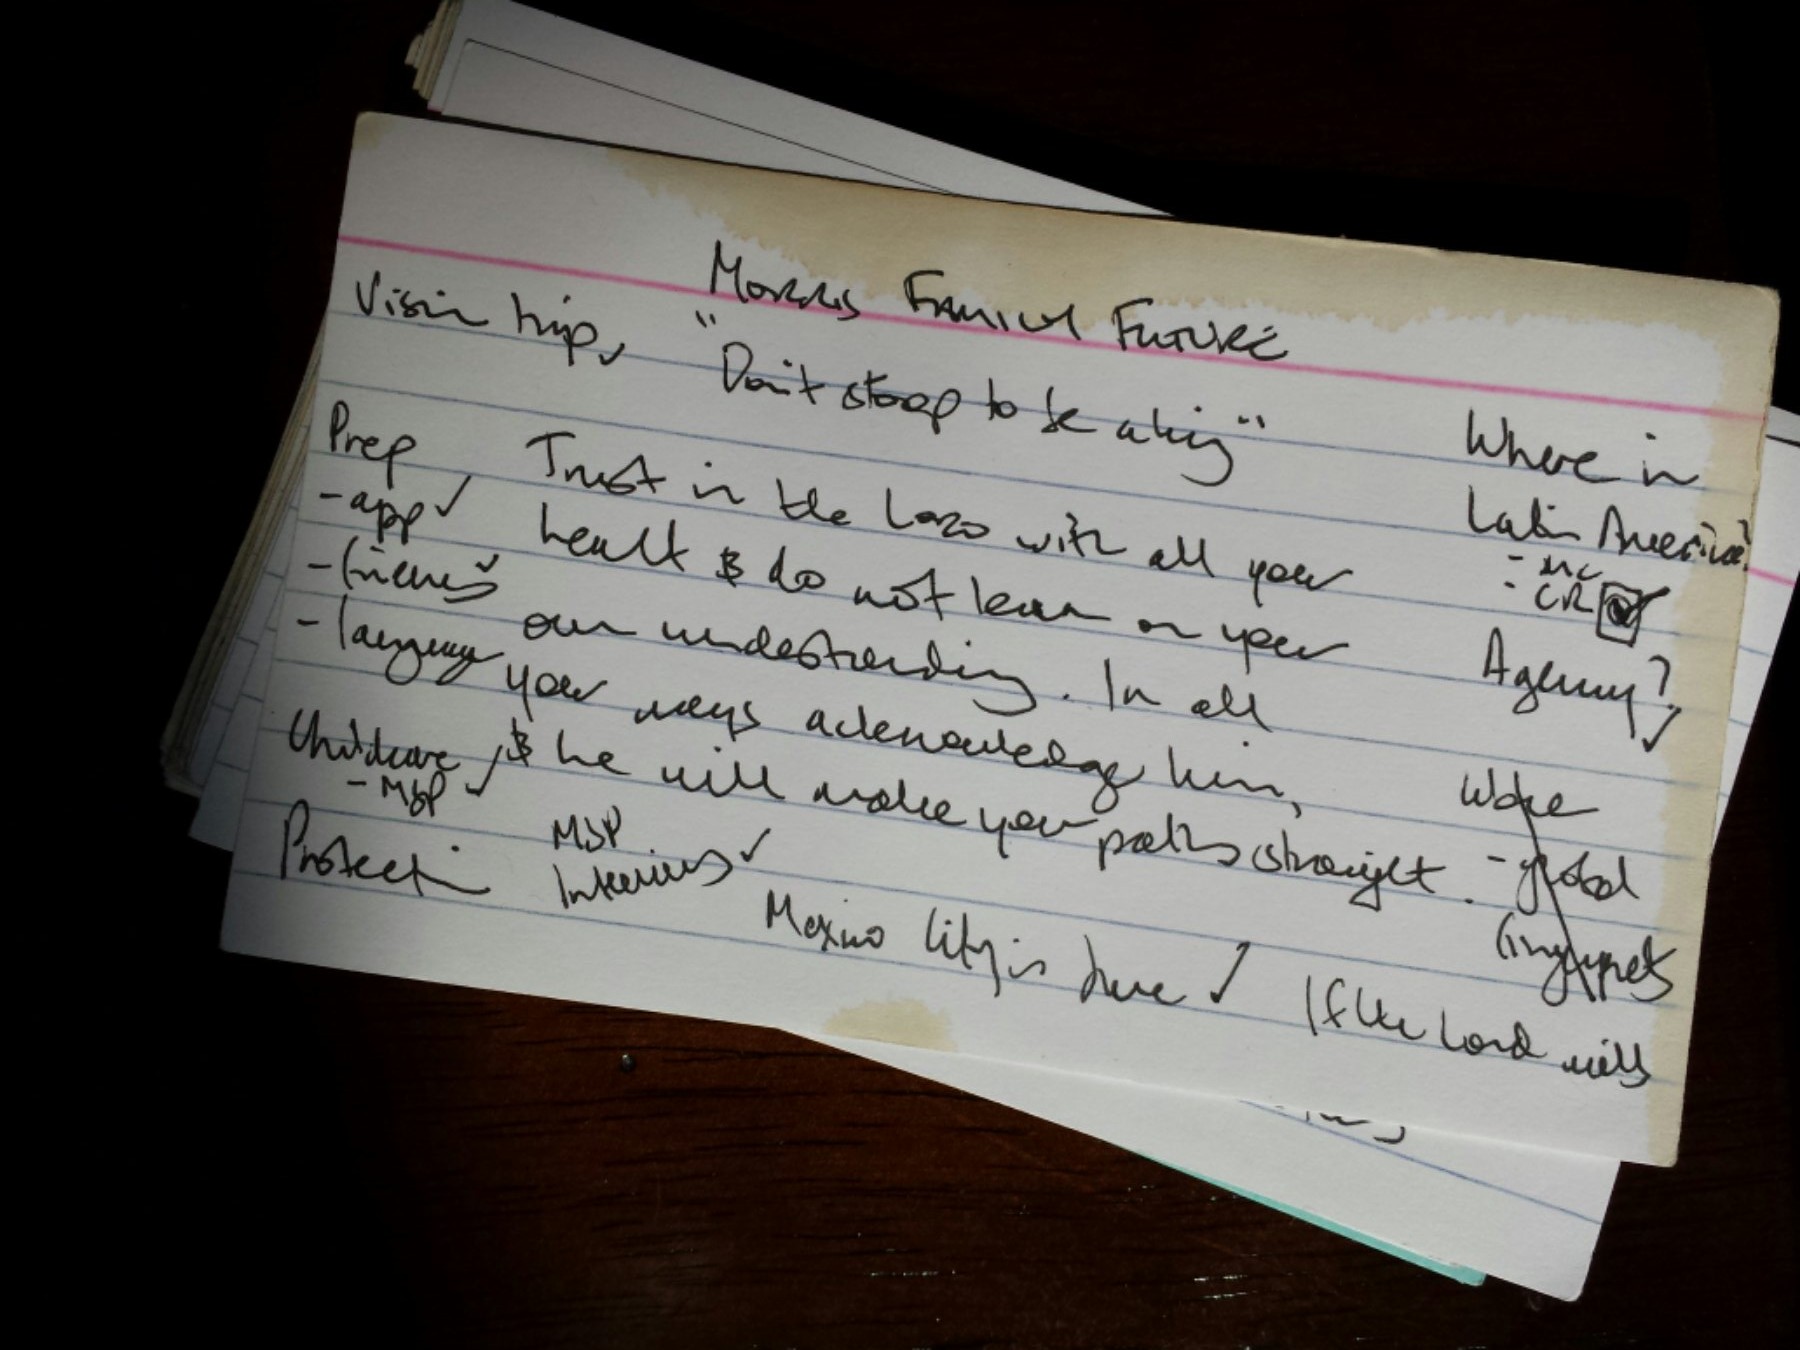 MORRIS FAMILY FUTURE
Vision trip ✓
"Don't stoop to be a king"
Prep
- app ✓
- ✓
- language
Childcare ✓
- MSP ✓
Protection
Trust in the LORD with all your
heart & do not lean on your
own understanding. In all
your ways acknowledge him,
& he will make your paths straight.
MSP
Interviews ✓
Mexico City is here ✓
Where in
Latin America?
- MC
- CR ☑
Agency? ✓
- global
If the Lord wills